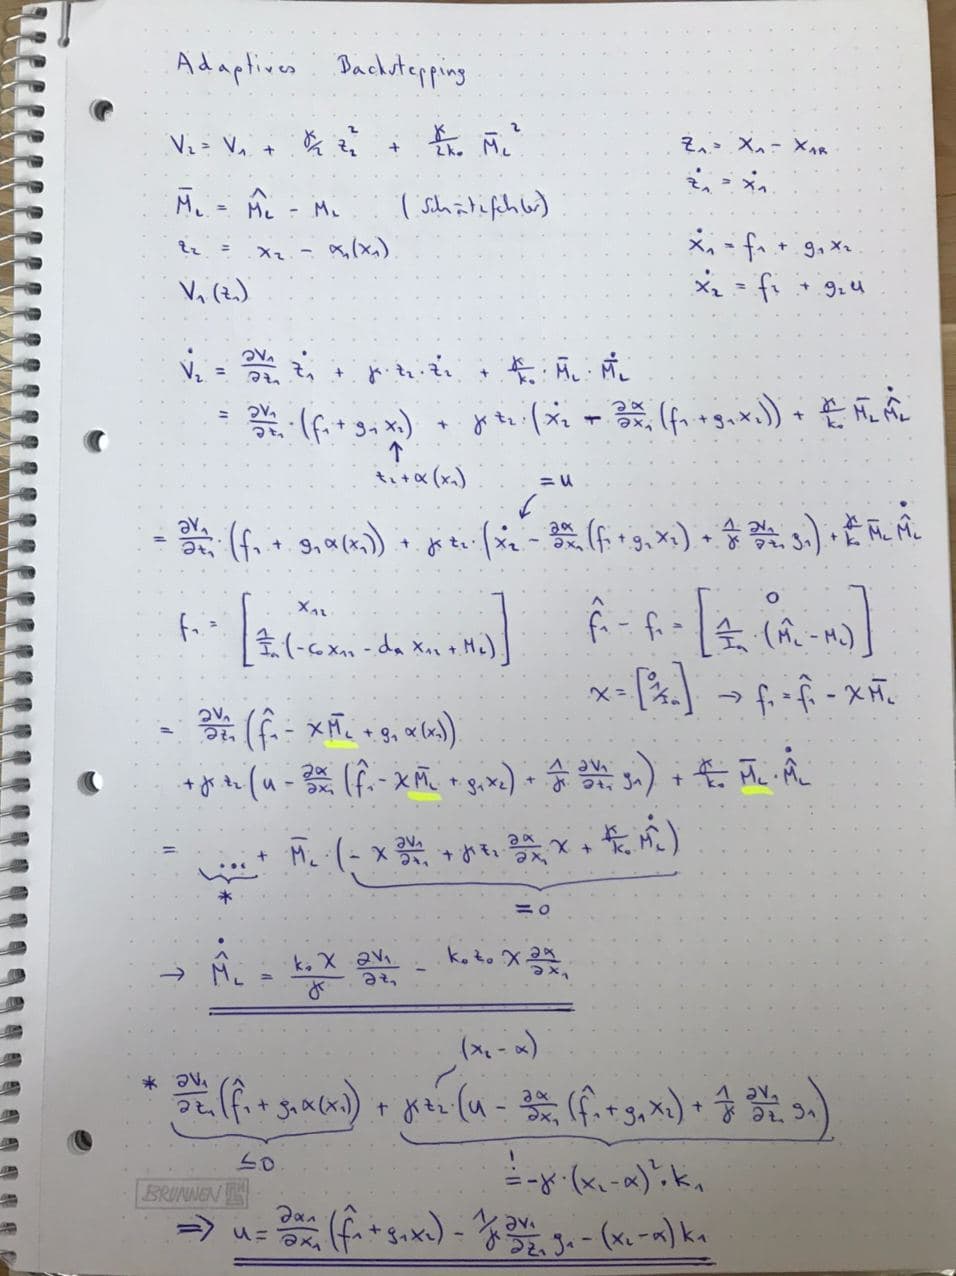 Adaptives Backstepping
V₂ = V₁ + γ/2 z₂² + γ/2k₀ M̄_L²
z₁ = x₁ - x₁R
ż₁ = ẋ₁
M̄_L = M̂_L - M_L (Schätzfehler)
z₂ = x₂ - α₁(x₁)
ẋ₁ = f₁ + g₁ x₂
V₁(z₁)
ẋ₂ = f₂ + g₂ u
V̇₂ = ∂V₁/∂z₁ ż₁ + γ · z₂ · ż₂ + γ/k₀ · M̄_L · M̄̇_L
= ∂V₁/∂z₁ · (f₁ + g₁ x₂) + γ z₂ · (ẋ₂ - ∂α/∂x₁ (f₁ + g₁ x₂)) + γ/k₀ M̄_L M̂̇_L
↑
z₂ + α(x₁)
= u
= ∂V₁/∂z₁ · (f₁ + g₁ α(x₁)) + γ z₂ · (ẋ₂ - ∂α/∂x₁ (f₁ + g₁ x₂) + 1/γ ∂V₁/∂z₁ g₁) + γ/k₀ M̄_L M̂̇_L
f₁ = [x₁₂ ; 1/Iₙ (-c₀ x₁₁ - dₐ x₁₂ + M_L)]
f̂₁ - f₁ = [0 ; 1/Iₙ · (M̂_L - M_L)]
χ = [0 ; 1/Iₙ] → f₁ = f̂₁ - χ M̄_L
= ∂V₁/∂z₁ (f̂₁ - χ M̄_L + g₁ α(x₁))
+ γ z₂ (u - ∂α/∂x₁ (f̂₁ - χ M̄_L + g₁ x₂) + 1/γ ∂V₁/∂z₁ g₁) + γ/k₀ M̄_L · M̂̇_L
= ... + M̄_L · (- χ ∂V₁/∂z₁ + γ z₂ ∂α/∂x₁ χ + γ/k₀ M̂̇_L)
*
= 0
→ M̂̇_L = k₀ χ/γ ∂V₁/∂z₁ - k₀ z₀ χ ∂α/∂x₁
(x₂ - α)
* ∂V₁/∂z₁ (f̂₁ + g₁ α(x₁)) + γ z₂ (u - ∂α/∂x₁ (f̂₁ + g₁ x₂) + 1/γ ∂V₁/∂z₁ g₁)
≤ 0
! = -γ · (x₂ - α)² · k₁
BRUNNEN
⇒ u = ∂α₁/∂x₁ (f̂₁ + g₁ x₂) - 1/γ ∂V₁/∂z₁ g₁ - (x₂ - α) k₁